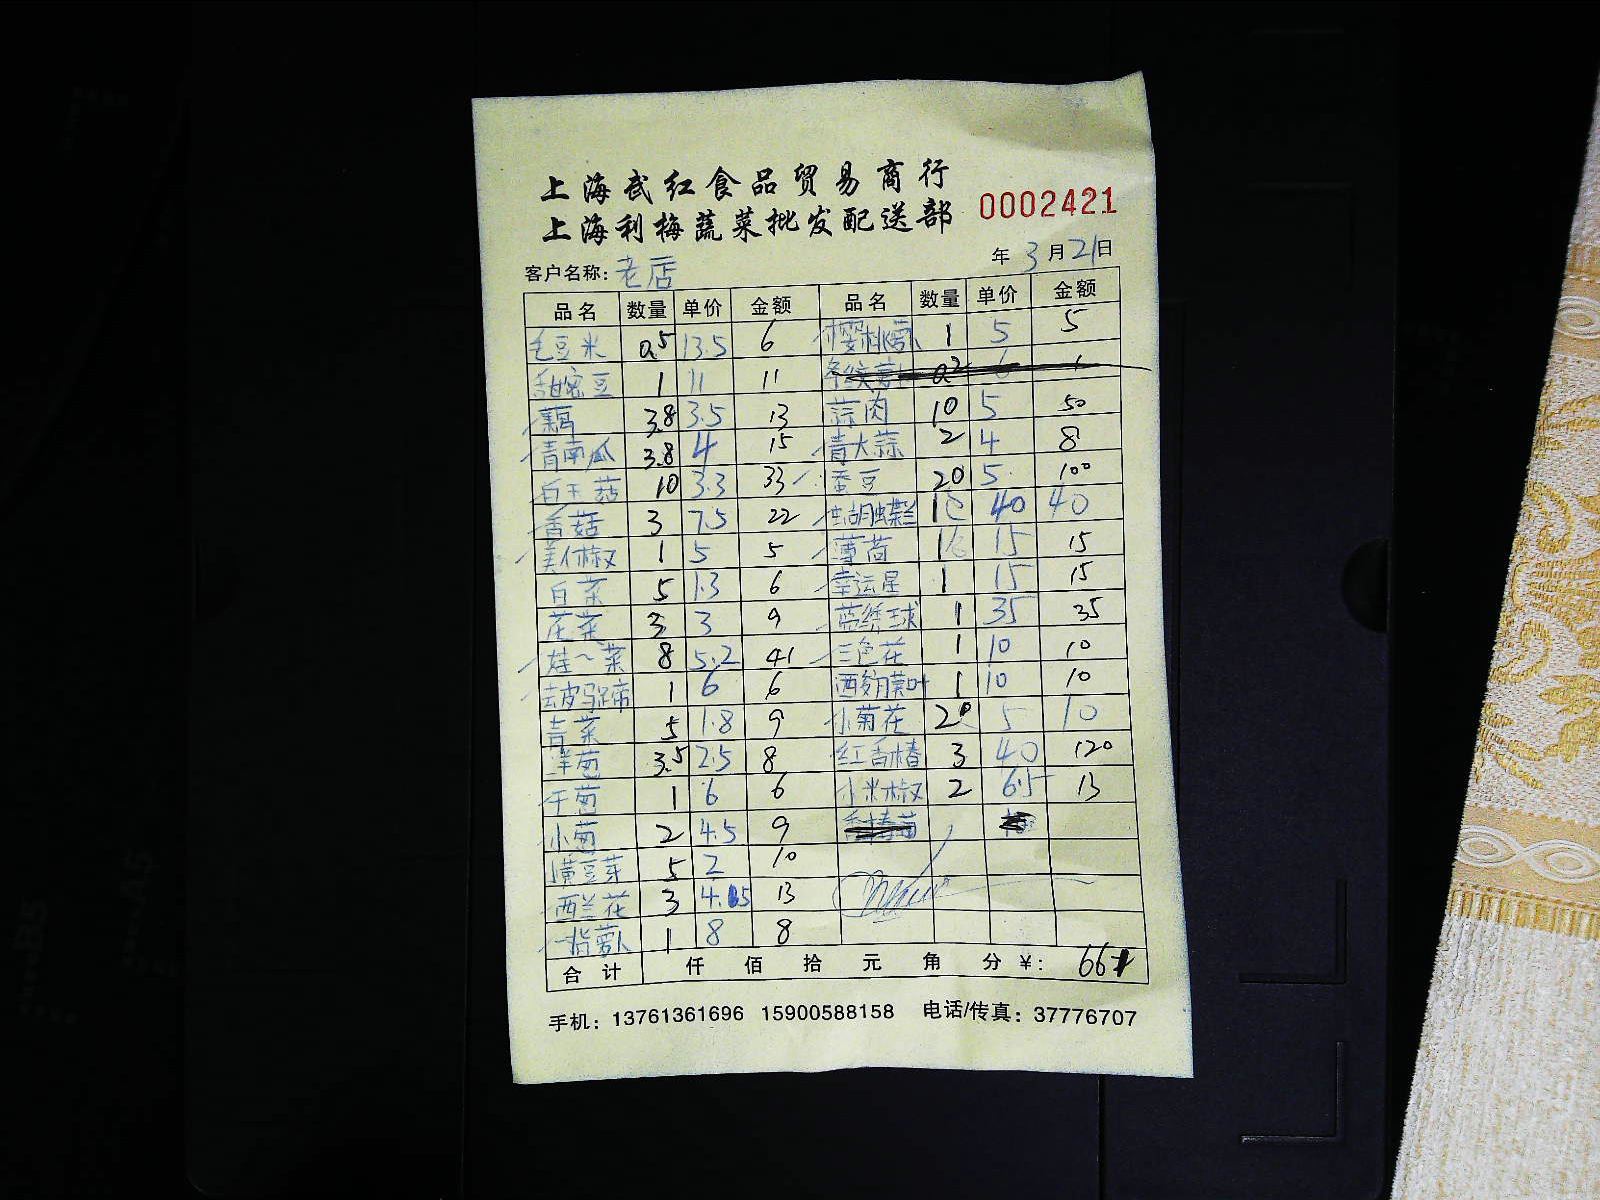 上海武红食品贸易商行
上海利梅蔬菜批发配送部
0002421
年 3 月 21 日
客户名称: 老店
品名 数量 单价 金额 品名 数量 单价 金额
毛豆米 0.5 13.5 6 樱桃萝卜 1 5 5
甜密豆 1 11 11
藕 3.8 3.5 13 蒜肉 10 5 50
青南瓜 3.8 4 15 青大蒜 2 4 8
白玉菇 10 3.3 33 蚕豆 20 5 100
香菇 3 7.5 22 蝴蝶兰 1 40 40
美人椒 1 5 5 薄荷 1 15 15
白菜 5 1.3 6 幸运星 1 15 15
花菜 3 3 9 蓝绣球 1 35 35
娃~菜 8 5.2 41 三色花 1 10 10
去皮马蹄 1 6 6 叶 1 10 10
青菜 5 1.8 9 小菊花 2 5 10
洋葱 3.5 2.5 8 红香椿 3 40 120
干葱 1 6 6 小米椒 2 6.5 13
小葱 2 4.5 9
黄豆芽 5 2 10
西兰花 3 13
萝卜 1 8 8
合计 仟 佰 拾 元 角 分 ¥: 667
手机: 13761361696 15900588158 电话/传真: 37776707